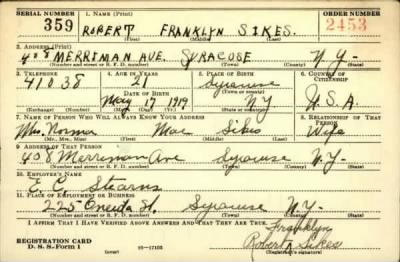 SERIAL NUMBER 1. NAME (Print) ORDER NUMBER
359 ROBERT FRANKLYN SIKES. 2453
(First) (Middle) (Last)
2. ADDRESS (Print)
408 MERRIMAN AVE. SYRACUSE N.Y-
(Number and street or R. F. D. number) (Town) (County) (State)
3. TELEPHONE 4. AGE IN YEARS 5. PLACE OF BIRTH 6. COUNTRY OF CITIZENSHIP
41038 21 Syracuse
DATE OF BIRTH (Town or county)
May 17 1919 NY U.S.A.
(Exchange) (Number) (Mo.) (Day) (Yr.) (State or country)
7. NAME OF PERSON WHO WILL ALWAYS KNOW YOUR ADDRESS 8. RELATIONSHIP OF THAT PERSON
Mrs. Norma Mae Sikes Wife
(Mr., Mrs., Miss) (First) (Middle) (Last)
9. ADDRESS OF THAT PERSON
408 Merriman Ave Syracuse N.Y-
(Number and street or R. F. D. number) (Town) (County) (State)
10. EMPLOYER'S NAME
E. C. Stearns
11. PLACE OF EMPLOYMENT OR BUSINESS
225 Oneida St. Syracuse NY-
(Number and street or R. F. D. number) (Town) (County) (State)
I AFFIRM THAT I HAVE VERIFIED ABOVE ANSWERS AND THAT THEY ARE TRUE.
Franklyn
REGISTRATION CARD Robert Sikes
D. S. S. Form 1 (over) 16—17105